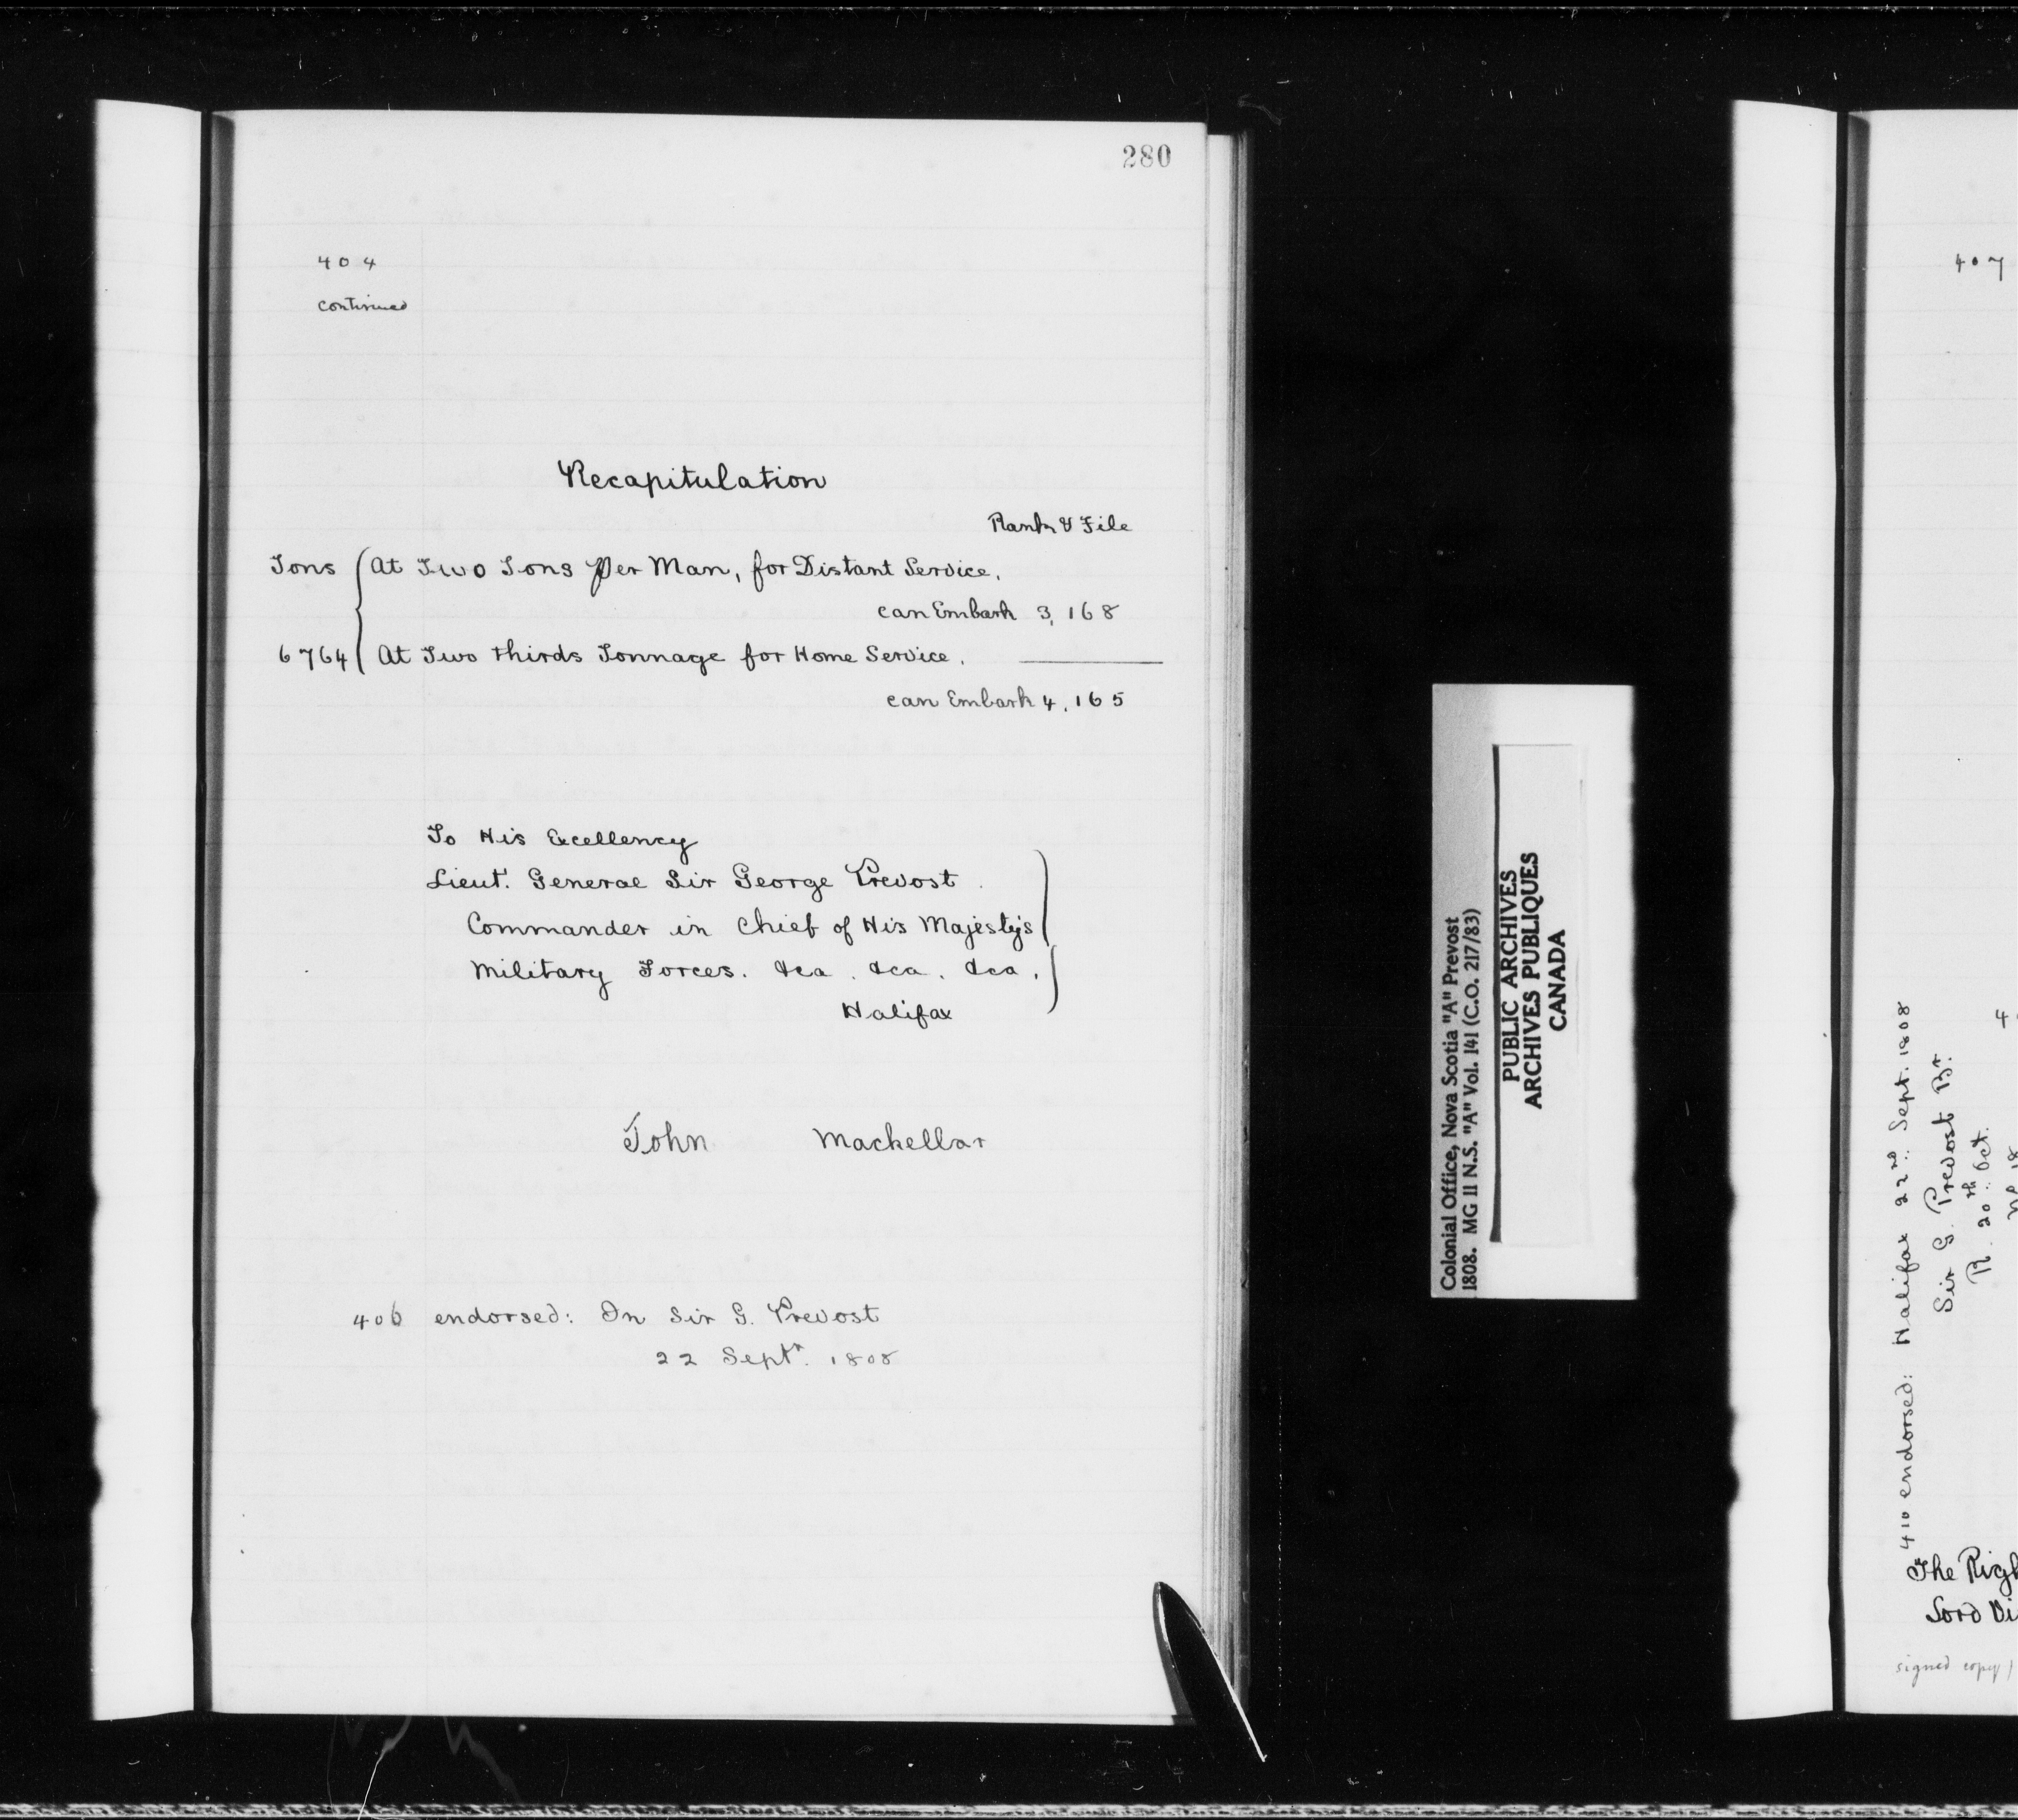 280
404
continued
Recapitulation
Rank & File
Tons { At Two Tons Per Man, for Distant Service.
can Embark 3,168
6764 { At Two thirds Tonnage for Home Service.
can Embark 4,165
To His Excellency
Lieut. General Sir George Prevost
Commander in Chief of His Majesty's
Military Forces. &ca. &ca. &ca.
Halifax
John Mackellar
406 endorsed: In Sir G. Prevost
22 Septr. 1808
Colonial Office, Nova Scotia "A" Prevost
1808. MG 11 N.S. "A" Vol. 141 (C.O. 217/83)
PUBLIC ARCHIVES
ARCHIVES PUBLIQUES
CANADA
407
410 endorsed: Halifax 22nd. Sept. 1808
Sir G. Prevost Bt.
R. 20th. Oct.
The Righ
Lord Vi
signed copy)